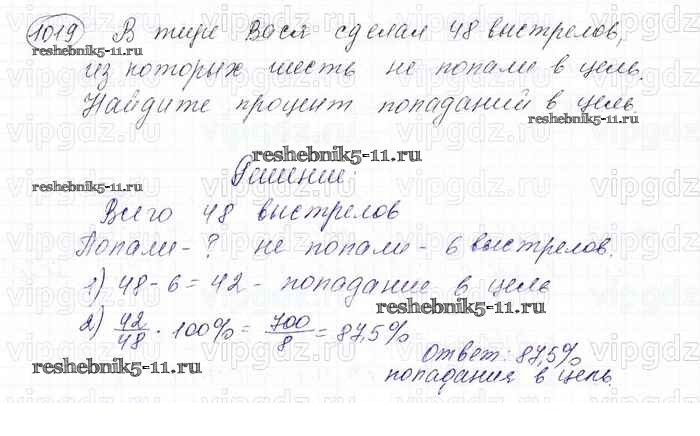 1019 В тире Вася сделал 48 выстрелов,
reshebnik5-11.ru
из которых шесть не попали в цель.
Найдите процент попаданий в цель.
reshebnik5-11.ru
reshebnik5-11.ru
Решение:
reshebnik5-11.ru
Всего 48 выстрелов
Попали - ? не попали - 6 выстрелов.
1) 48 - 6 = 42 - попадание в цель
reshebnik5-11.ru
2) 42/48 · 100% = 700/8 = 87,5%
reshebnik5-11.ru
Ответ: 87,5%
попадания в цель.